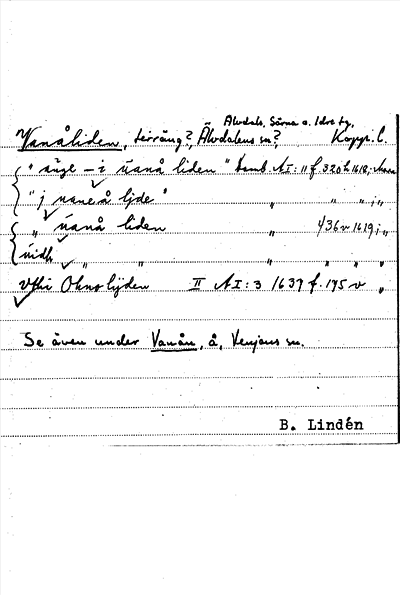 Älvdals, Särna o. Idre tg,
Vanåliden, terräng?, Älvdalens sn? Kopp. l.
"änge – i üanå liden" Domb. A I: 11 f. 320 1618,
"j vane å lijde" " " " ; "
" üanå liden " 436 v 1619; "
üidh " " " " " "
Vthi Ohno lijden II A I: 3 1637 f. 195 v "
Se även under Vanån, å, Venjans sn.
B. Lindén